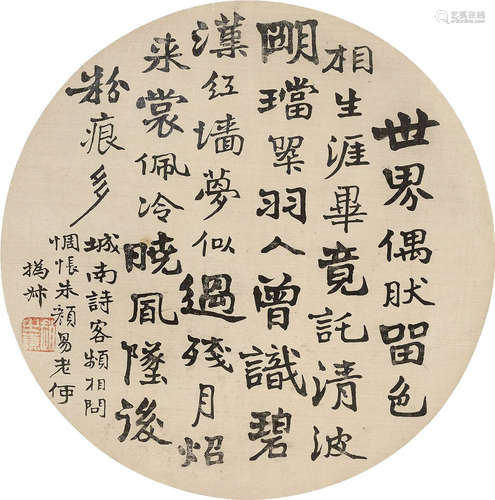 世界偶肰畱色
相生涯畢竟託清波
朙璫翠羽人曾識碧
漢紅墻夢似過殘月炤
来裳佩冷曉風墜後
粉痕多
城南詩客頻相問
惆悵朱顏易老何
撝叔